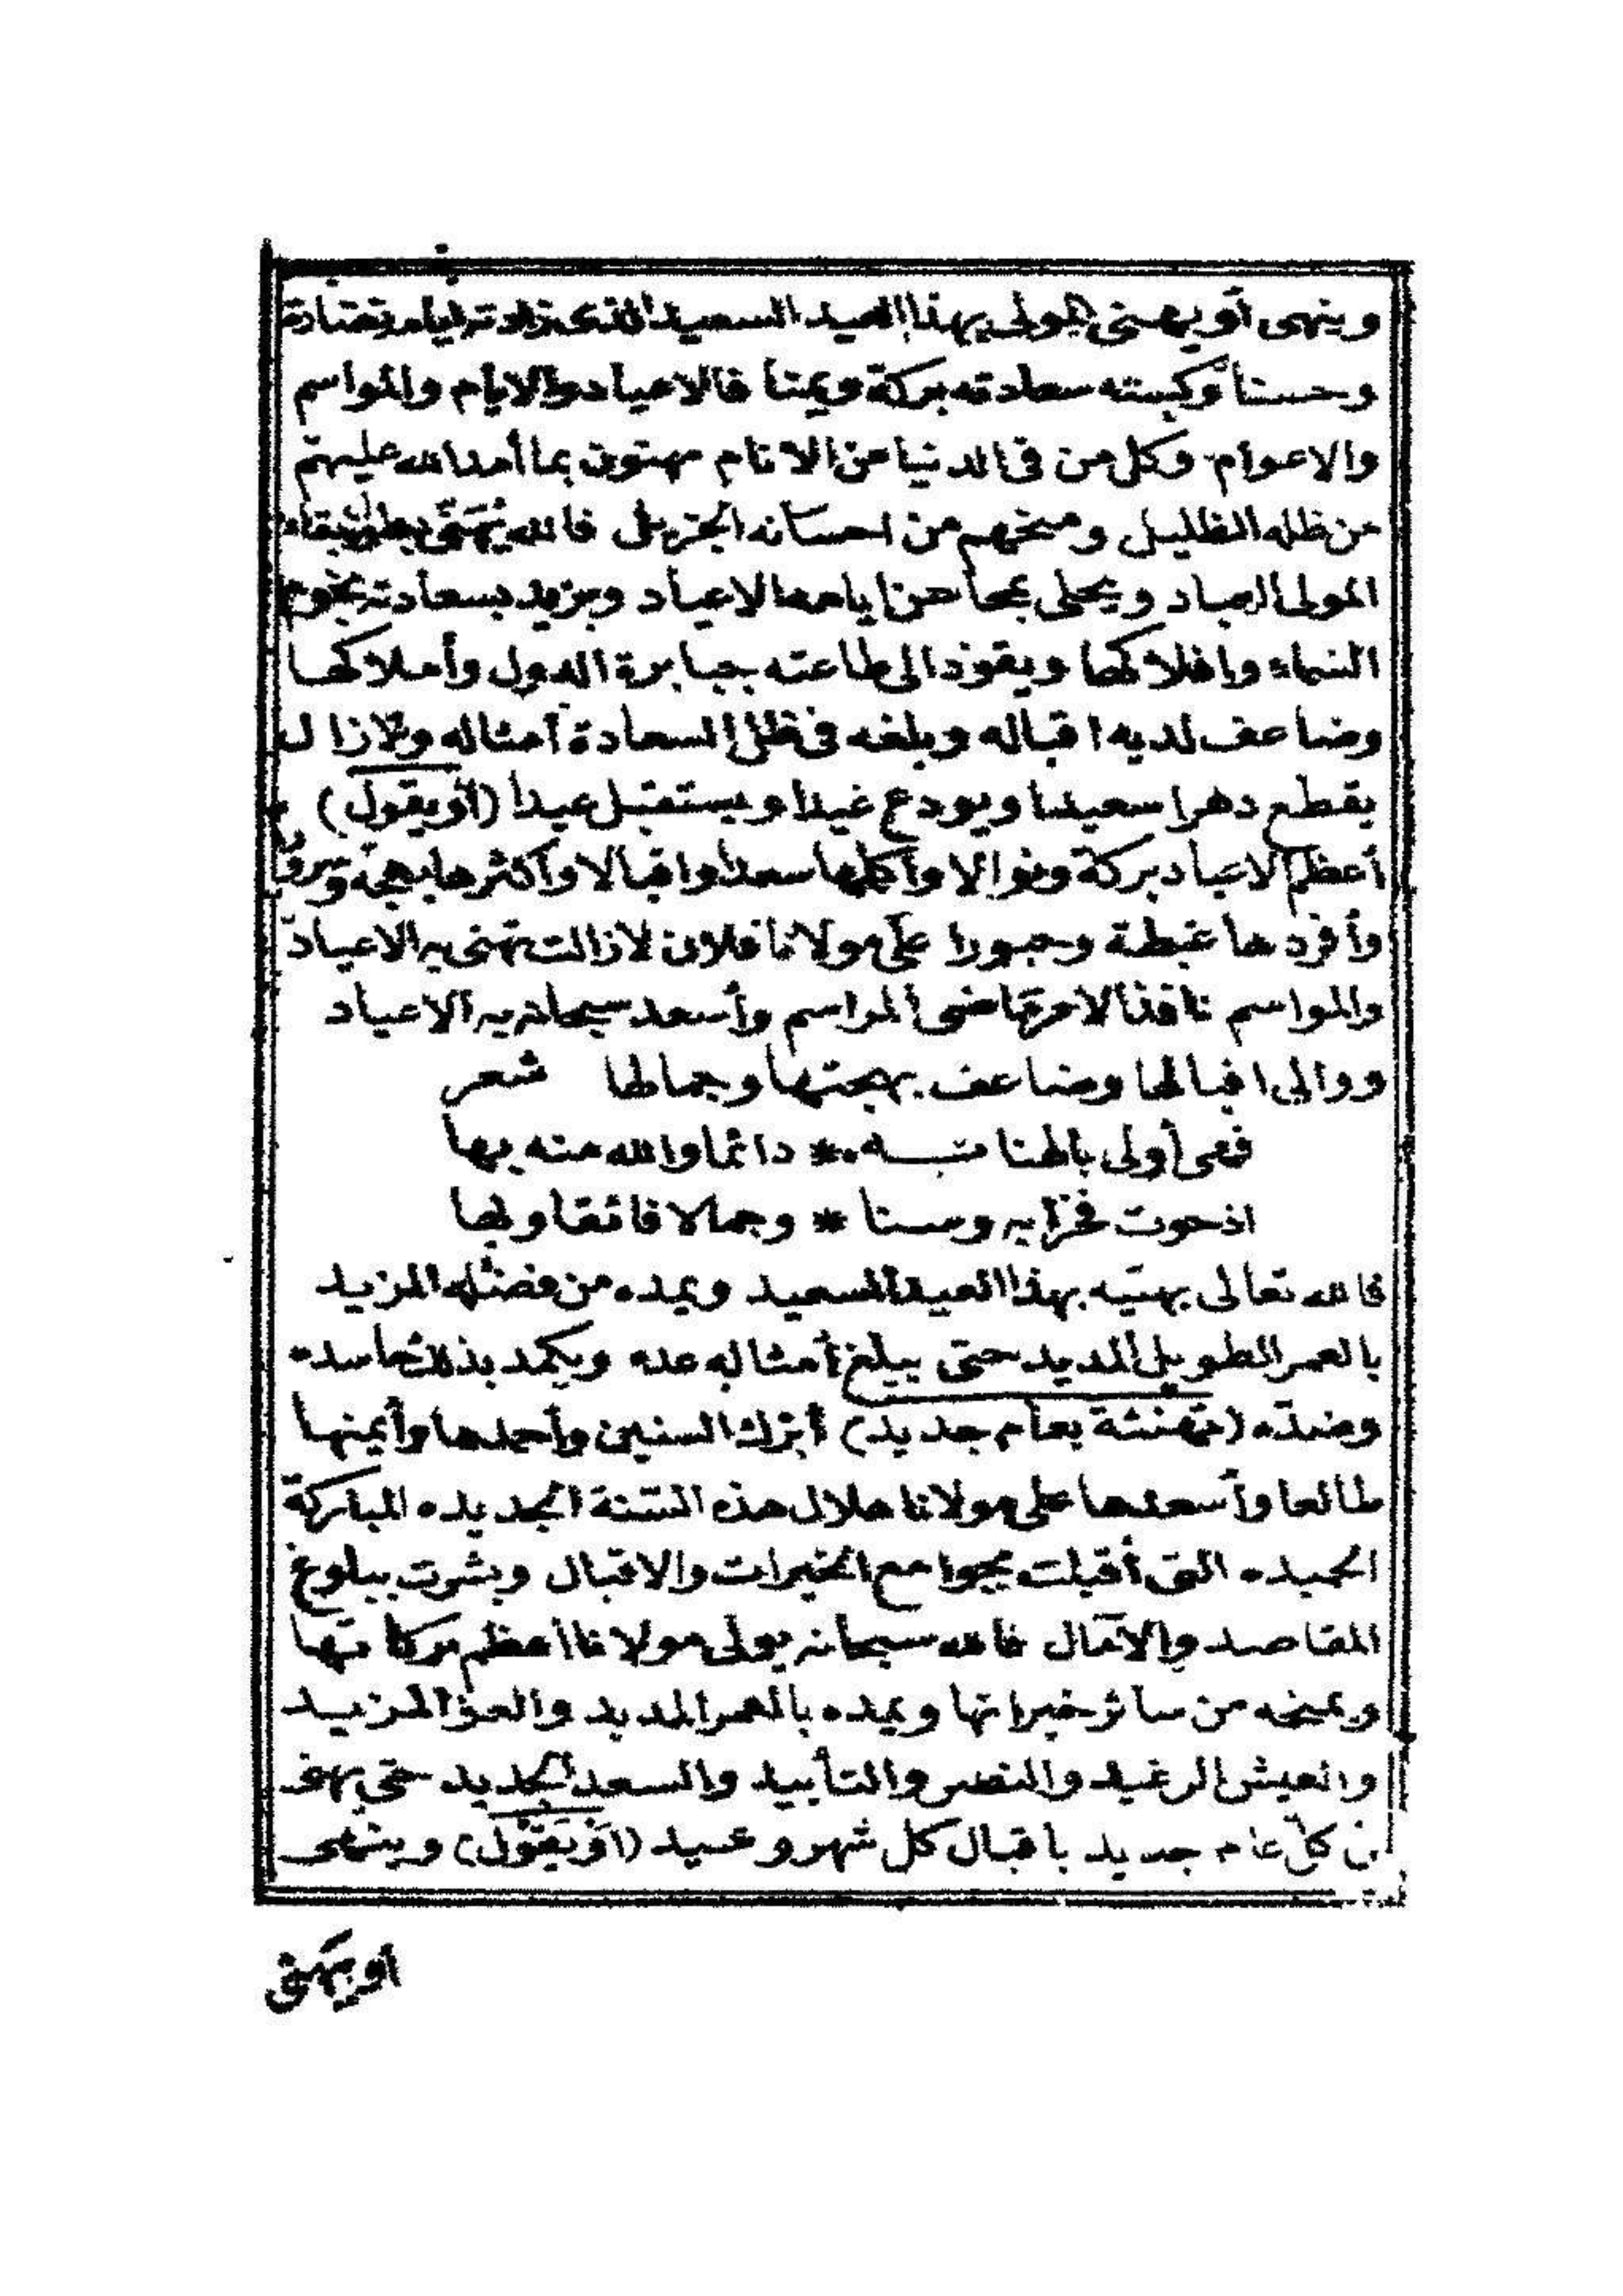 وينهى أو يهنى المولى بهذا العيد السعيد الذى زادته أيامه نضارة
وحسنا وكسته سعادته بركة ويمنا فالاعياد والايام والمواسم
والاعوام وكل من فى الدنيا من الانام مهنون بما أمد الله عليهم
من ظله الظليل ومنحهم من احسانه الجزيل فالله يهنى بطول بقاء
المولى العباد ويحلى بمحاسن ايامه الاعياد ويزيد بسعادته نجوم
السماء وافلاكها ويقود الى طاعته جبابرة الدول وأملاكها
وضاعف لديه اقباله وبلغه فى ظل السعادة أمثاله ولا زال
يقطع دهرا سعيدا ويودع عيدا ويستقبل عيدا (أو يقول)
أعظم الاعياد بركة ونوالا وأكملها سعدا واقبالا وأكثرها بهجة وسرورا
وأفردها غبطة وحبورا على مولانا فلان لازالت تهنى به الاعياد
والمواسم نافذ الامر ماضى المراسم وأسعد سبحانه به الاعياد
ووالى اقبالها وضاعف بهجتها وجمالها شعر
فهى أولى بالهنا منه به * دائما والله منه بها
اذ حوت فخرا به وسنا * وجمالا فائقا وبها
فالله تعالى يهنيه بهذا العيد السعيد ويمده من فضله المزيد
بالعمر الطويل المديد حتى يبلغ أمثاله عده ويكمد بذلك حاسده
وضده (تهنئة بعام جديد) أبرك السنين وأحمدها وأيمنها
طالعا وأسعدها على مولانا هلال هذه السنة الجديده المباركة
الحميده التى أقبلت بجوامع الخيرات والاقبال وبشرت ببلوغ
المقاصد والآمال فالله سبحانه يولى مولانا أعظم بركاتها
ويمنحه من سائر خيراتها ويمده بالعمر المديد والعز المزيد
والعيش الرغيد والنصر والتأييد والسعد الجديد حتى يهنى
من كل عام جديد باقبال كل شهر وعيد (أو يقول) وينهى
أو يهنى